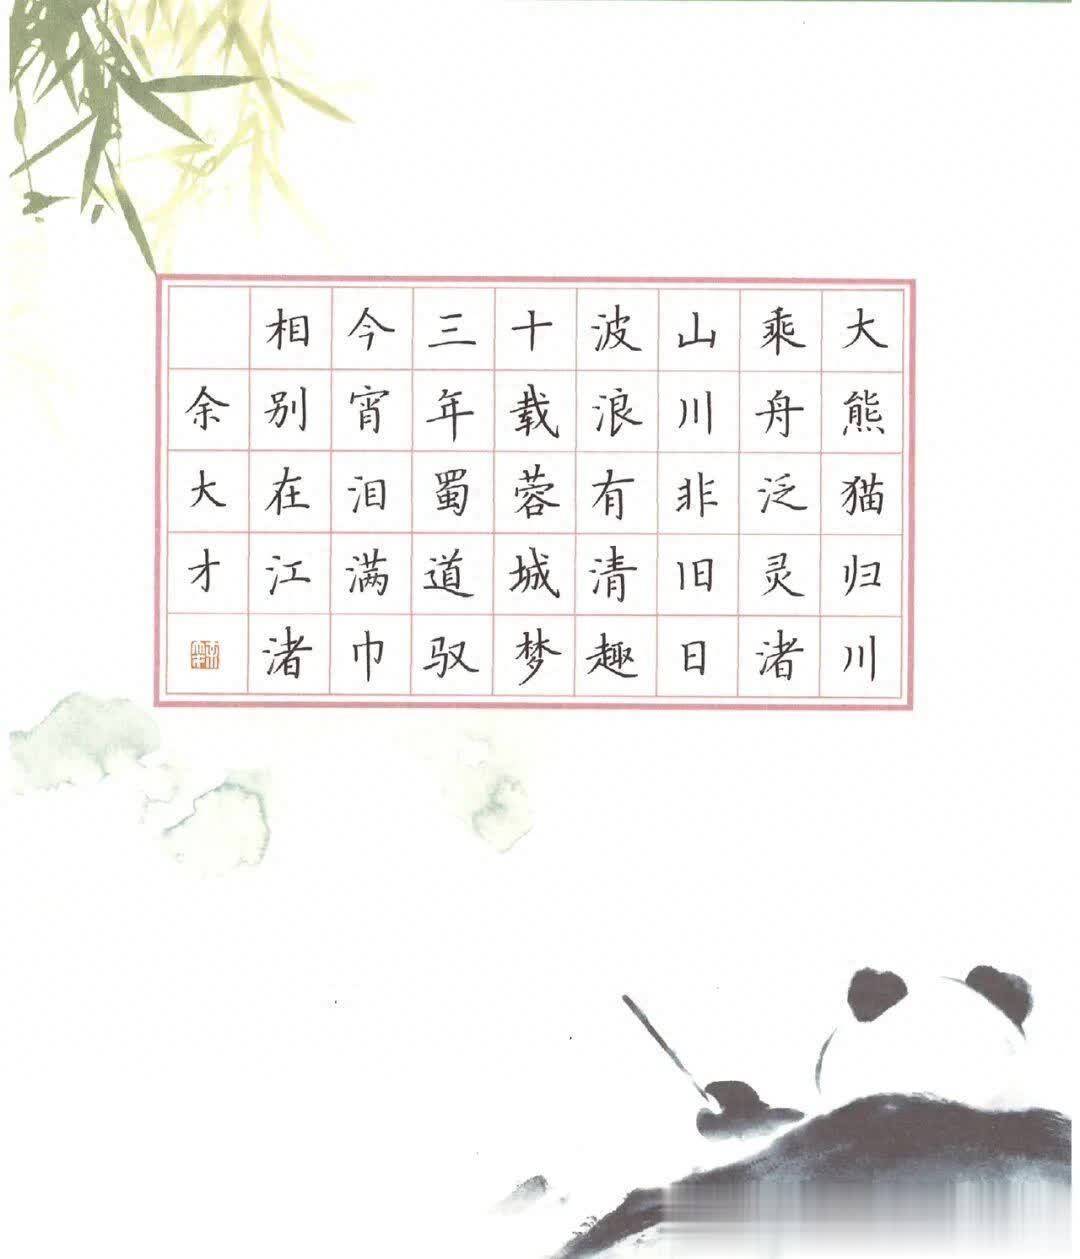 大熊猫归川
乘舟泛灵渚
山川非旧日
波浪有清趣
十载蓉城梦
三年蜀道驭
今宵泪满巾
相别在江渚
余大才